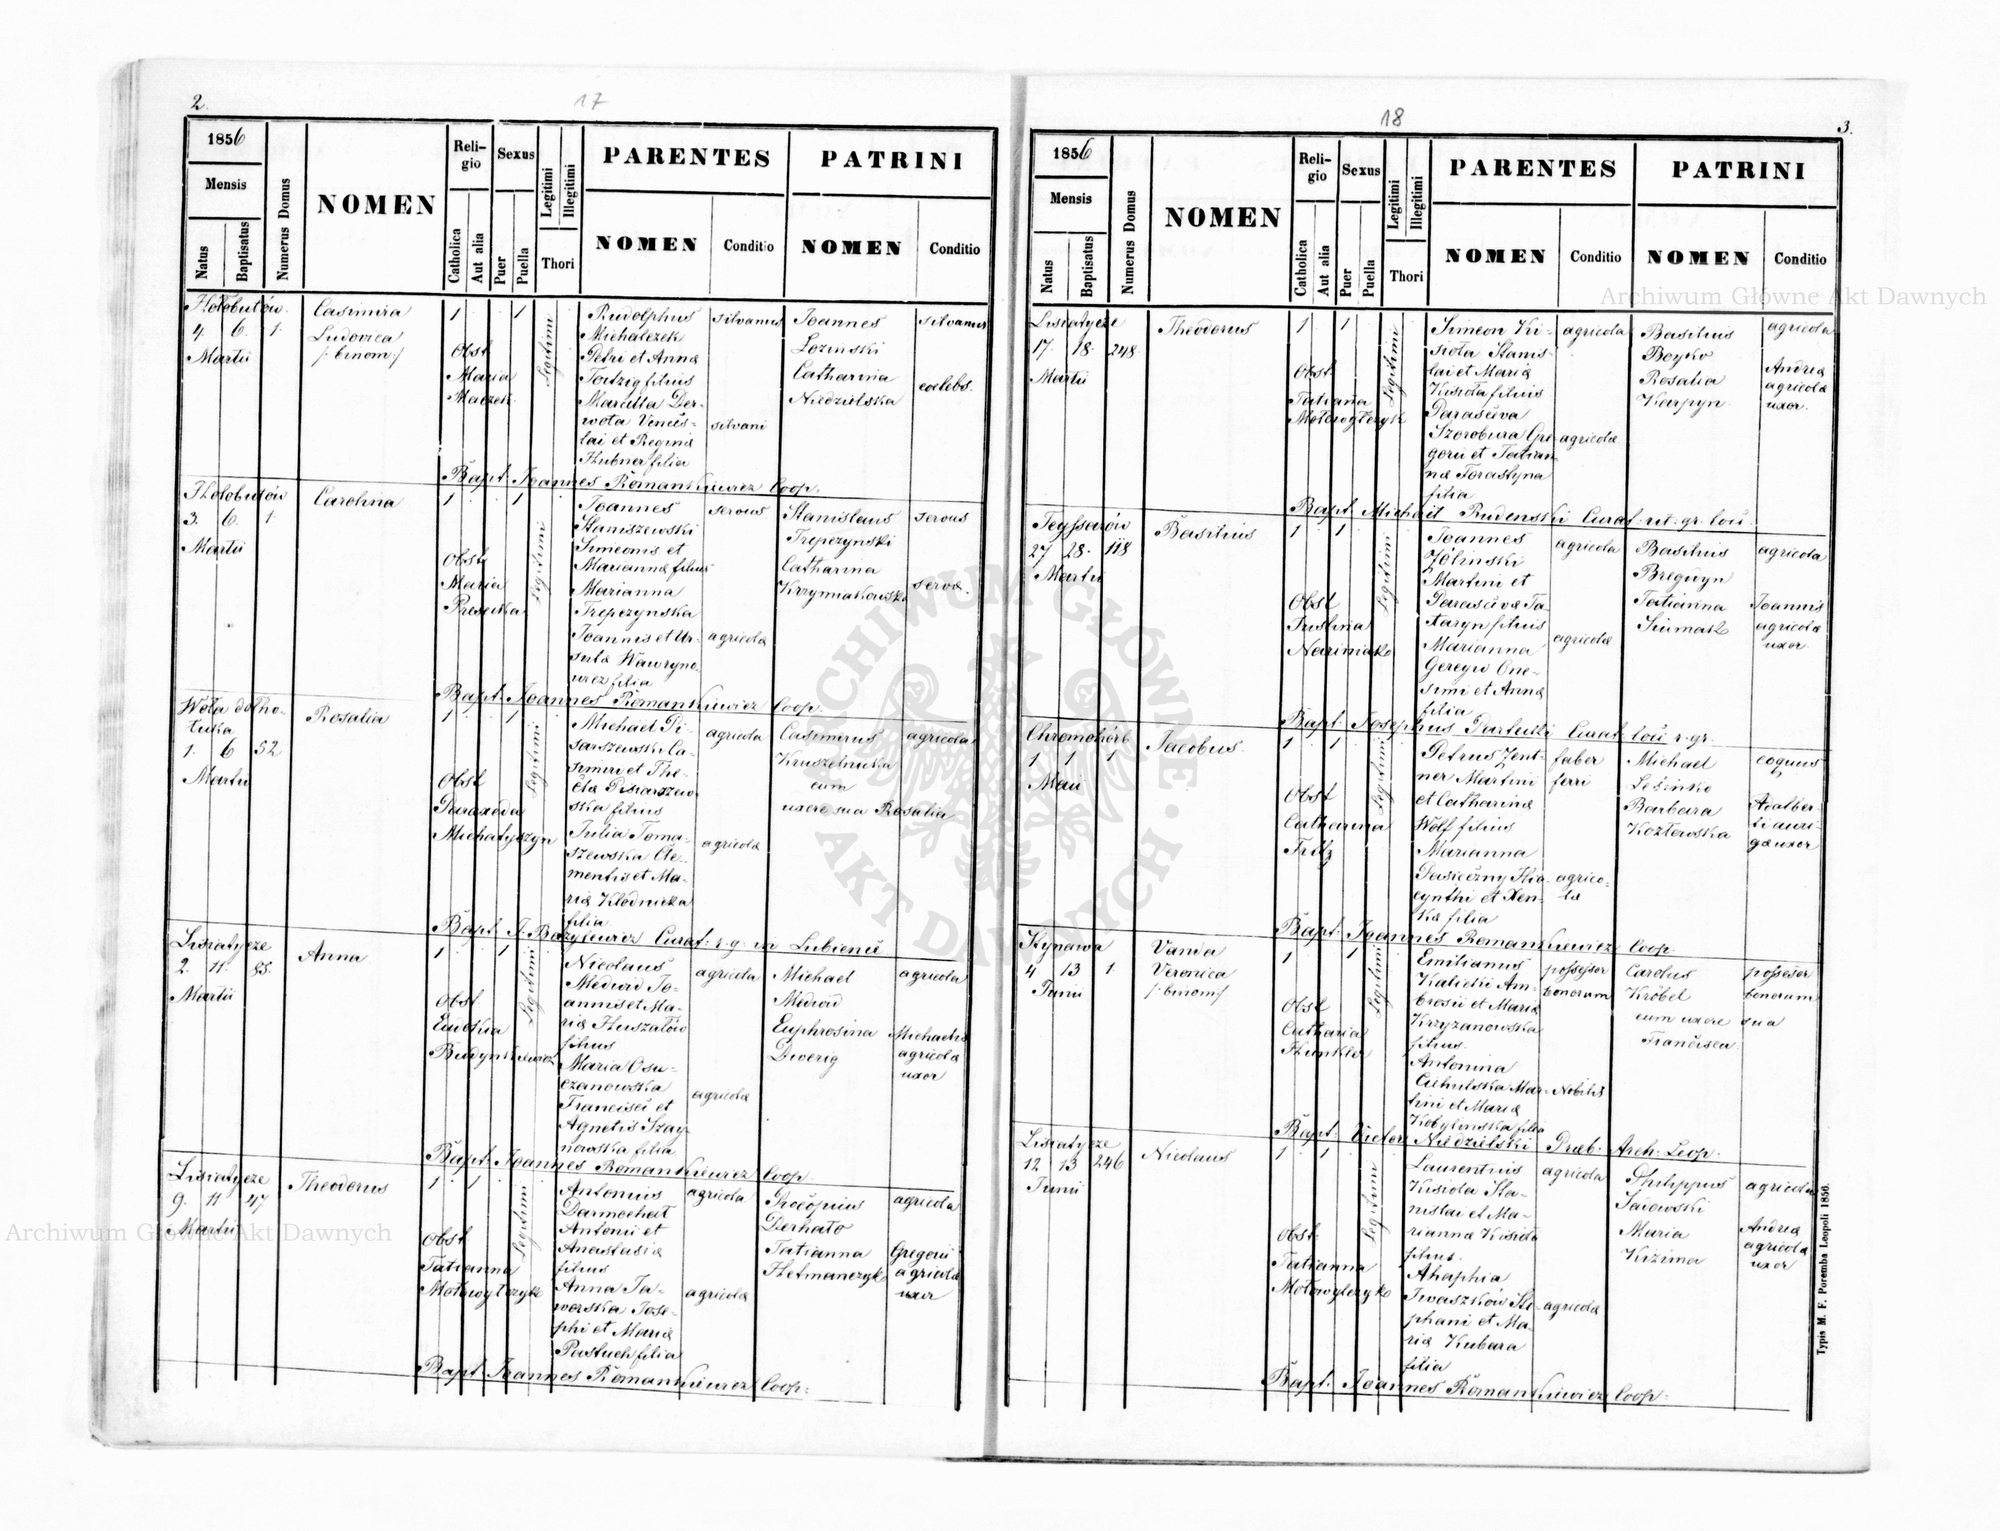 2.
17
1856
Mensis
Natus
Baptisatus
Numerus Domus
NOMEN
Reli-
gio
Catholica
Aut alia
Sexus
Puer
Puella
Legitimi
Illegitimi
Thori
PARENTES
NOMEN
Conditio
PATRINI
NOMEN
Conditio
Hołobutów
4. 6. 1.
Martii
Casimira
Ludovica
/:binom:/
1 1
Obst
Maria
Maczek
Legitimi
Rudolphus
Michalezek
Petri et Annæ
filius
Marcella Der-
wota Vences-
lai et Reginæ
Hubner filia
silvanus
silvani
Joannes
Łozinski
Catharina
Niedzielska
silvanus
coelebs.
Bapt. Joannes Romankiewicz Coop.
Hołobutów
3. 6. 1.
Martii
Carolina
1 1
Obst
Maria
Legitimi
Joannes
Staniszewski
Simeonis et
Mariannæ filius
Marianna
Trepczynska
Joannis et Ur-
sulæ Wawryno-
wicz filia
servus
agricolæ
Stanislaus
Trepczynski
Catharina
Krzyminkowska
servus
servæ.
Bapt. Joannes Romankiewicz Coop.
Wola dołho-
łucka
1. 6 52
Martii
Rosalia
1 1
Obst
Paraxeda
Michałyszyn
Legitimi
Michael Pi-
sarszewski Ca-
simiri et The-
clæ Pisarszew-
ska filius
Julia Toma-
szewska Cle-
mentis et Ma-
riæ Kłodnicka
filia
agricola
agricolæ
Casimirus
Kruszelnicka
cum
uxore sua Rosalia
agricola
Bapt. J. Bazylewicz Curat: r. g: in Lubience
Lisiatycze
2. 11. 85.
Martii
Anna
1 1
Obst
Budynkiewicz
Legitimi
Nicolaus
Medwid Jo-
annis et Ma-
riæ Huszałów
filius
Maria Osu-
czanowska
Francisci et
Agnetis Szay-
nowska filia
agricola
agricolæ
Michael
Medwid
Euphrosina
Dwerig
agricola
Michaelis
agricolæ
uxor
Bapt: Joannes Romankiewicz Coop.
Lisiatycze
9. 11 47
Martii
Theodorus
1 1
Obst
Tatianna
Mołowylczyk
Legitimi
Antonius
Darmochał
Antonii et
Anastasiæ
filius
Anna Ja-
worska Jose-
phi et Mariæ
Pastuch filia
agricola
agricolæ
Procopius
Derhało
Tatianna
Hetmanczyk
agricola
Gregorii
agricolæ
uxor
Bapt. Joannes Romankiewicz Coop:
18
3.
1856
Mensis
Natus
Baptisatus
Numerus Domus
NOMEN
Reli-
gio
Catholica
Aut alia
Sexus
Puer
Puella
Legitimi
Illegitimi
Thori
PARENTES
NOMEN
Conditio
PATRINI
NOMEN
Conditio
Lisiatycze
17. 18. 248.
Martii
Theodorus
1 1
Obst
Tatiana
Mołowylczyk
Legitimi
Simeon Ki-
sioła Stanis-
lai et Mariæ
Kisioła filius
Parasceva
Szorobura Gre-
gorii et Tatian-
næ Forastyna
filia
agricola
agricolæ
Basilius
Boyko
Rosalia
Karpyn
agricola
Andreæ
agricolæ
uxor.
Bapt. Michael Rudenski Curat. rit. gr. loci.
Teyssarów
27 28. 118
Martii
Basilius
1 1
Obst
Justina
Narimiako
Legitimi
Joannes
Martini et
Parascevæ Ta-
taryn filius
Marianna
Gereyu One-
simi et Annæ
filia
agricola
agricolæ
Basilius
Breguyn
Tatianna
agricola
Joannis
agricolæ
uxor
Bapt: Josephus Curat. loci r. gr.
Chromohórb
1 1 1
Maii
Jacobus.
1 1
Obst
Catharina
Fritz
Legitimi
Petrus Zent-
ner Martini
et Catharinæ
Wolf filius
Marianna
Pasiczny Hia-
cynthi et Xen-
kæ filia
faber
ferri
agrico-
læ
Michael
Barbara
Kozłowska
coquus
Adalber-
ti auri-
gæ uxor
Bapt. Joannes Romankiewicz Coop
Stynawa
4 13 1
Junii
Vanda
Veronica
/:binom:/
1 1
Obst
Catharina
Legitimi
Emilianus
Kalicki Am-
brosii et Mariæ
Krzyzanowska
filius.
Antonina
Cichulska Mar-
tini et Mariæ
Kobylinska filia
possessor
bonorum
Nobilis
Carolus
Kröbel
cum uxore sua
Francisca
possessor
bonorum
Bapt. Victor Niedzielski Præb. Arch. Leop.
Lisiatycze
12 13 246
Junii
Nicolaus
1 1
Obst.
Tatianna
Mołowylczyk
Legitimi
Laurentius
Kisioła Sta-
nislai et Ma-
riannæ Kisioła
filius.
Ahaphia
Iwaszków Ste-
phani et Ma-
riæ Kubara
filia
agricola
agricolæ
Philippus
Sadowski
Maria
Kizima
agricola
Andreæ
agricolæ
uxor
Bapt. Joannes Romankiewicz Coop:
Typis M. F. Poremba Leopoli 1856.
Archiwum Główne Akt Dawnych
Archiwum Główne Akt Dawnych
ARCHIWUM GŁÓWNE
AKT DAWNYCH